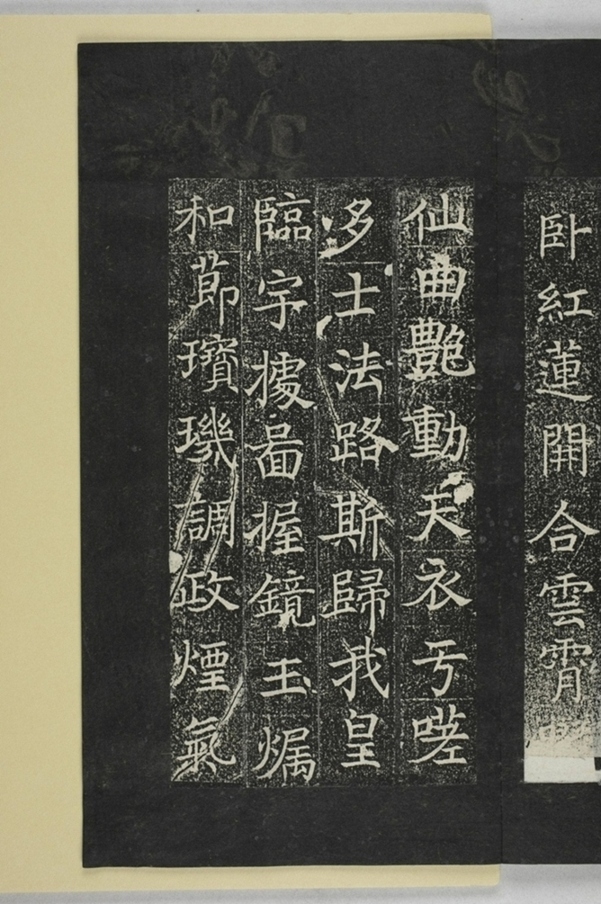 卧紅蓮開合雲霄
仙曲艷動天衣亐嗟
多士法路斯歸我皇
臨宇據啚握鏡玉爥
和莭璸璣調政煙氣